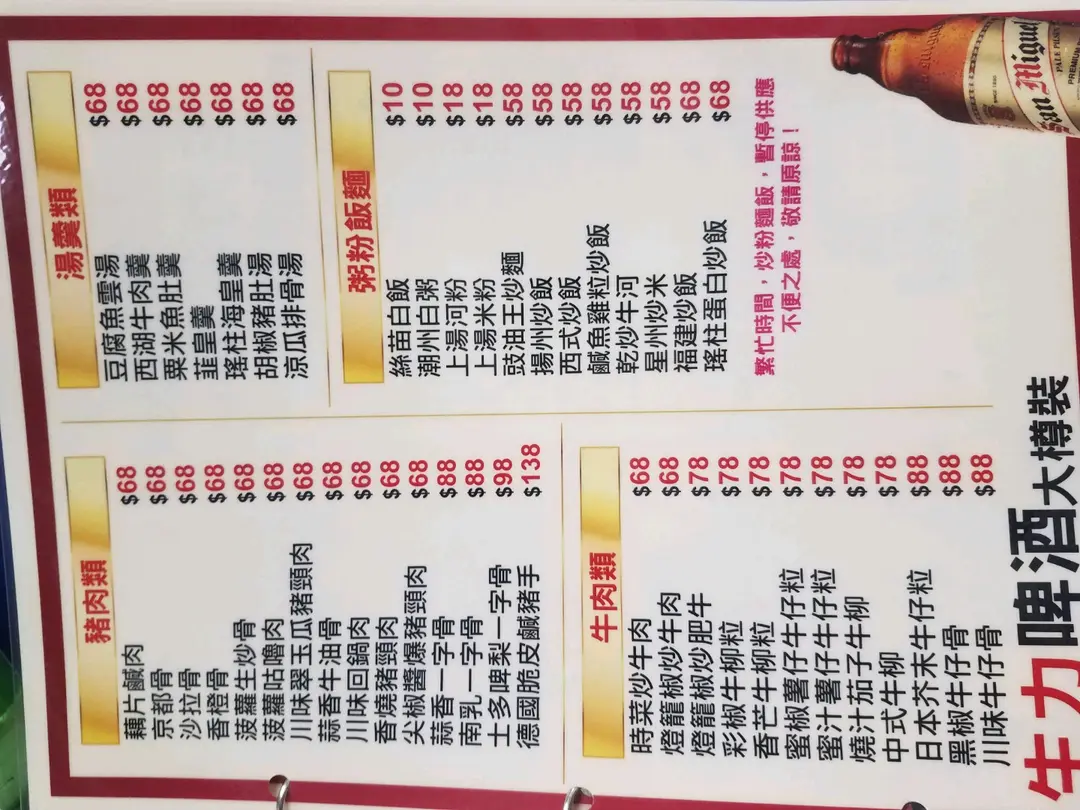 豬肉類
藕片鹹肉 $68
京都骨 $68
沙拉骨 $68
香橙骨 $68
菠蘿生炒骨 $68
菠蘿咕嚕肉 $68
川味翠玉瓜豬頸肉 $68
蒜香牛油骨 $68
川味回鍋肉 $68
香燒豬頸肉 $68
尖椒醬爆豬頸肉 $68
蒜香一字骨 $88
南乳一字骨 $88
士多啤梨一字骨 $98
德國脆皮鹹豬手 $138
牛肉類
時菜炒牛肉 $68
燈籠椒炒牛肉 $68
燈籠椒炒肥牛 $78
彩椒牛柳粒 $78
香芒牛柳粒 $78
蜜椒薯仔牛仔粒 $78
蜜汁薯仔牛仔粒 $78
燒汁茄子牛柳 $78
中式牛柳 $78
日本芥末牛仔粒 $88
黑椒牛仔骨 $88
川味牛仔骨 $88
湯羹類
豆腐魚雲湯 $68
西湖牛肉羹 $68
粟米魚肚羹 $68
韮皇羹 $68
瑤柱海皇羹 $68
胡椒豬肚湯 $68
涼瓜排骨湯 $68
粥粉飯麵
絲苗白飯 $10
潮州白粥 $10
上湯河粉 $18
上湯米粉 $18
豉油王炒麵 $58
揚州炒飯 $58
西式炒飯 $58
鹹魚雞粒炒飯 $58
乾炒牛河 $58
星州炒米 $58
福建炒飯 $68
瑤柱蛋白炒飯 $68
繁忙時間，炒粉麵飯，暫停供應
不便之處，敬請原諒！
牛力啤酒大樽裝
San Miguel
PALE PILSEN
PREMIUM